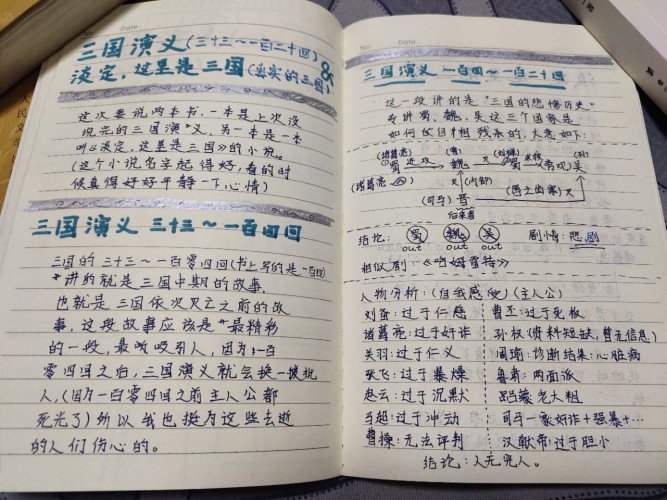 Date:
三国演义(三十三～一百二十回)&
淡定,这里是三国(真实的三国)
这次要说两本书,一本是上次没
说完的三国演义,另一本是一本
叫《淡定,这里是三国》的小说。
(这个小说名字起得好,看的时
候真得好好平静一下心情)
三国演义 三十三～一百四回
三国的三十三～一百零四回(书上写的是一百四回)
讲的就是三国中期的故事,
也就是三国依次灭亡之前的故
事,这段故事应该是"最精彩
的一段,最吸引人,因为:一百
零四回之后,三国演义就会换一拨批
人,(因为一百零四回之前主人公都
死光了)所以我也挺为这些去逝
的人们伤心的。
Date:
三国演义 一百四～一百二十回
这一段讲的是"三国的悲惨历史"
专讲蜀、魏、吴这三个国家是
如何仅自相残杀的,大意如下:
(诸葛亮) (曹) (刘禅) (孙)
蜀 进攻 魏 蜀 吴
(诸葛亮) 灭 (内部) 灭
(司马) 晋
后来者
结论: 蜀 魏 吴 剧情:悲剧
out out out
相似剧:《哈姆雷特》
人物分析:(自我感觉)(主人公)
刘备:过于仁慈 曹丕:过于死板
诸葛亮:过于奸诈 孙权(资料短缺,暂无信息)
关羽:过于仁义 周瑜:诊断结果:心脏病
张飞:过于暴燥 鲁肃:两面派
赵云:过于沉默 吕蒙:老大粗
马超:过于冲动 司马一家奸诈+强暴+…
曹操:无法评判 汉献帝:过于胆小
结论:人无完人。